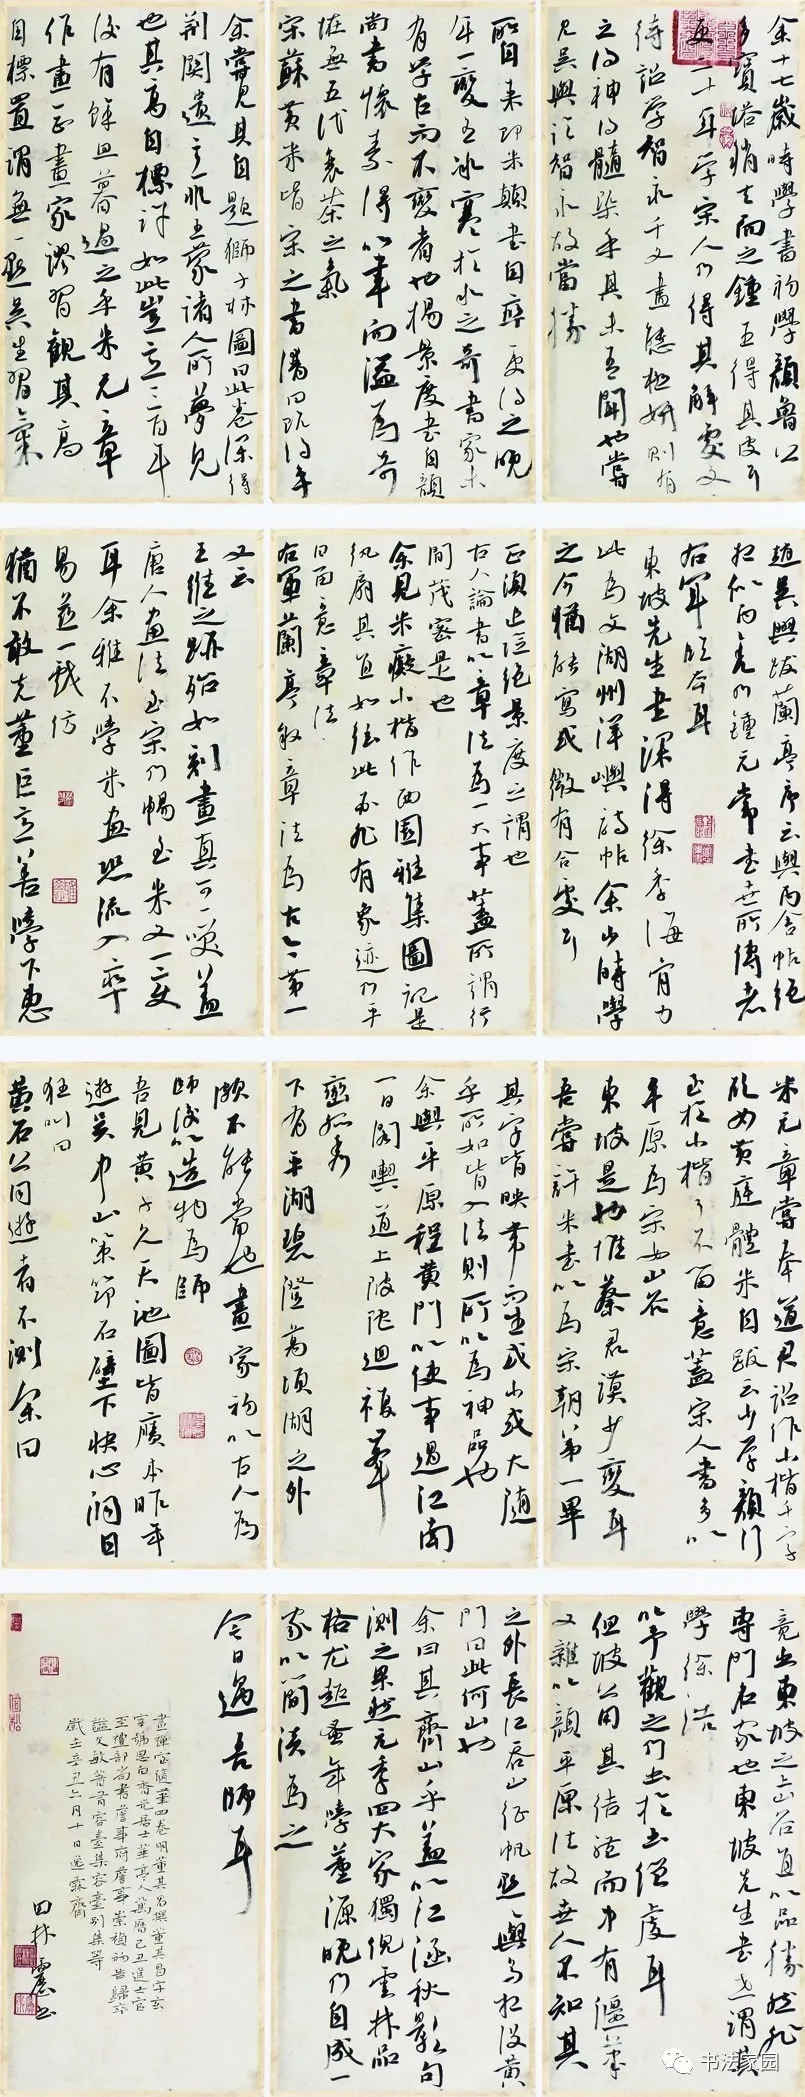 余十七歲時學書初學顏魯公
多寶塔稍去而之鍾王得其皮耳
更二十年學宋人乃得其解處文
待詔學智永千文盡態極妍則有
之得神得髓染乎其未吾聞也嘗
見吳興臨智永故當勝
趙吳興跋蘭亭序云與丙舍帖絕
相似丙舍乃鍾元常書世所傳者
右軍臨本耳
東坡先生書深得徐季海骨力
此為文湖州洋嶼詩帖余少時學
之今猶能寫或微有合處耳
米元章嘗奉道君詔作小楷千字
欲如黃庭體米自跋云少學顏行
至於小楷了不留意蓋宋人書多以
平原為宗如山谷
東坡是也惟蔡君謨少變耳
吾嘗評米書以為宋朝第一畢
竟出東坡之上山谷直以品勝然非
專門名家也東坡先生書世謂其
學徐浩
以予觀之乃出於王僧虔耳
但坡公用其結體而中有偃筆
又雜以顏平原法故世人不知其
所自來即米顛書自率更得之晚
年一變有冰寒於水之奇書家未
有學古而不變者也楊景度書自顏
尚書懷素得筆而溢為奇
恠無五代衰茶之氣
宋蘇黃米皆宗之書譜曰既得平
正須追險絕景度之謂也
古人論書以章法為一大事蓋所謂行
間茂密是也
余見米癡小楷作西園雅集圖記是
紈扇其直如弦此必非有象迹乃平
日留意章法
右軍蘭亭敘章法為古今第一
其字皆映帶而生或小或大隨
手所如皆入法則所以為神品也
余與平原程黃門以使事過江南
一日閣輿道上陂陀迴複峯
巒孤秀
下有平湖碧澄萬頃湖之外
之外長江吞山征帆點點與鳥相沒黃
門曰此何山也
余曰其齊山乎蓋以江涵秋影句
測之果然元季四大家獨倪雲林品
格尤超蚤年學董源晚乃自成一
家以簡淡為之
余嘗見其自題獅子林圖曰此卷深得
荊關遺意非王蒙諸人所夢見
也其高自標許如此豈意三百年
後有餘旦暮遇之乎米元章
作畫一正畫家謬習觀其高
自標置謂無一點吳生習氣
又云
王維之跡殆如刻畫真可一笑蓋
唐人畫法至宋乃暢至米又一變
耳余雅不學米畫恐流入率
易茲一戲仿
猶不敢失董巨意善學下惠
頗不能當也畫家初以古人為
師後以造物為師
吾見黃子久天池圖皆贋本昨年
遊吳中山策筇石壁下快心洞目
狂叫曰
黃石公同遊者不測余曰
今日遇吾師耳
畫禪室隨筆四卷明董其昌撰董其昌字玄
宰號思白香光居士華亭人萬曆己丑進士官
至禮部尚書詹事府詹事崇禎初告歸卒
謚文敏著有容臺集容臺別集等
歲在辛丑六月十日逸霖齋
田林震書
书法家园